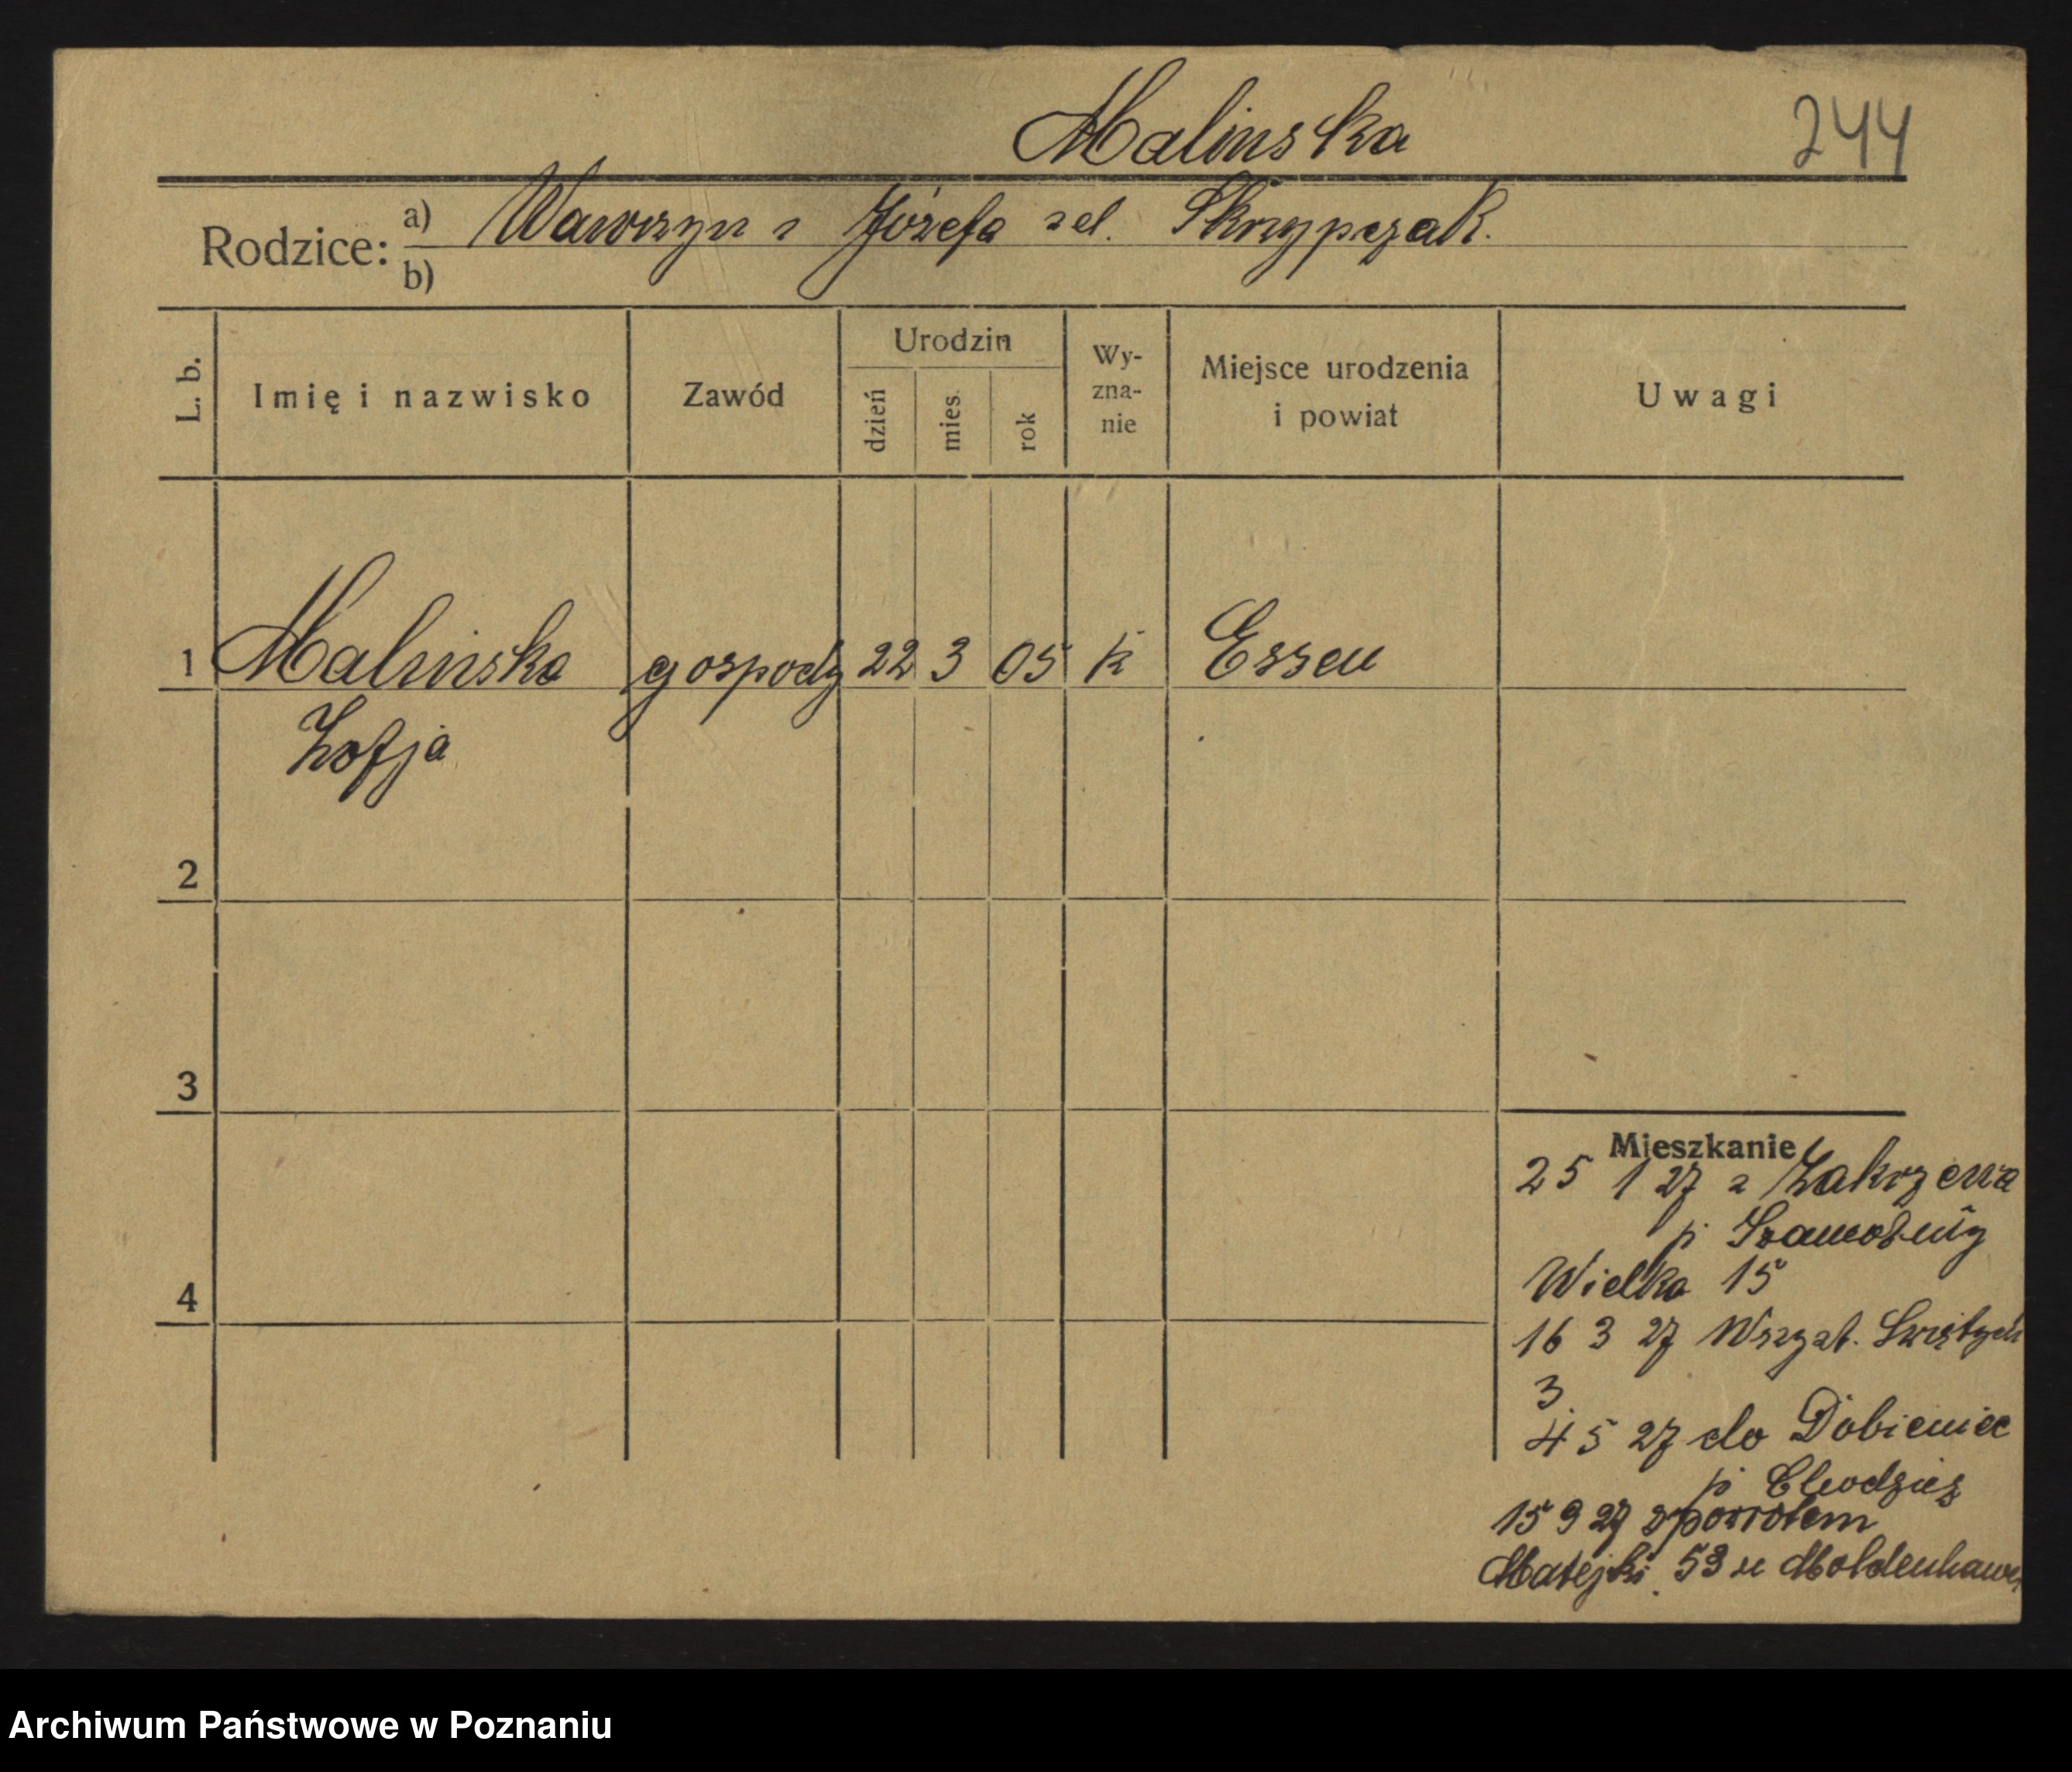 Malinska
244
Rodzice: a) Wawrzyn i Józefa zd. Skrzypczak.
b)
L. b.
Imię i nazwisko
Zawód
Urodzin
dzień
mies.
rok
Wy-
zna-
nie
Miejsce urodzenia
i powiat
Uwagi
1 Malinska gospody 22 3 05 k Essen
Zofja
2
3
4
Mieszkanie
25 1 27 z Zakrzewa
p Szamotuły
Wielka 15
16 3 27 Wszyst. Świętych
3
4 5 27 do Dobieniec
p Chodzież
15 9 27 zpowrotem
Matejki 53 u Moldenhawer
Archiwum Państwowe w Poznaniu